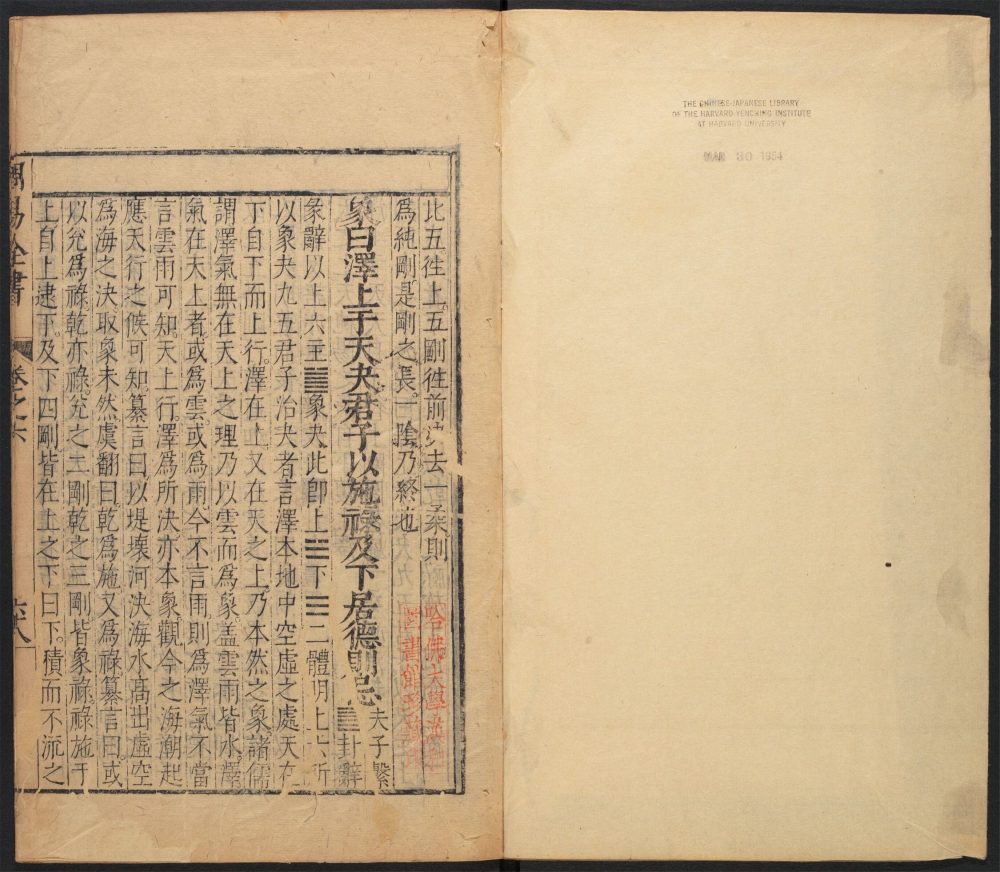 THE CHINESE-JAPANESE LIBRARY
OF THE HARVARD-YENCHING INSTITUTE
AT HARVARD UNIVERSITY
MAR 30 1954
比五徃上五剛徃前決去一柔則
爲純剛是剛之長一陰乃終也
象曰澤上于天夬君子以施祿及下居德則忌䷪夫子繫卦辭
象辭以上六至䷪象夬此卽上☱下☰二體明上六所
以象夬九五君子治夬者言澤本地中空虛之處天在
下自下而上行澤在上又在天之上乃本然之象諸儒
謂澤氣無在天上之理乃以雲而爲象盖雲雨皆水澤
氣在天上者或爲雲或爲雨今不言雨則爲澤氣不當
言雲雨可知天上行澤爲所決亦本象觀今之海潮起
應天行之候可知纂言曰以堤壞河決海水髙出虛空
爲海之決取象未然虞翻曰乾爲施又爲祿纂言曰或
以兊爲祿乾亦祿兊之二剛乾之三剛皆象祿祿施于
上自上逮下及下四剛皆在上之下曰下積而不流之
周易全書
卷之六
六八
哈佛大學漢和
圖書館珍藏印